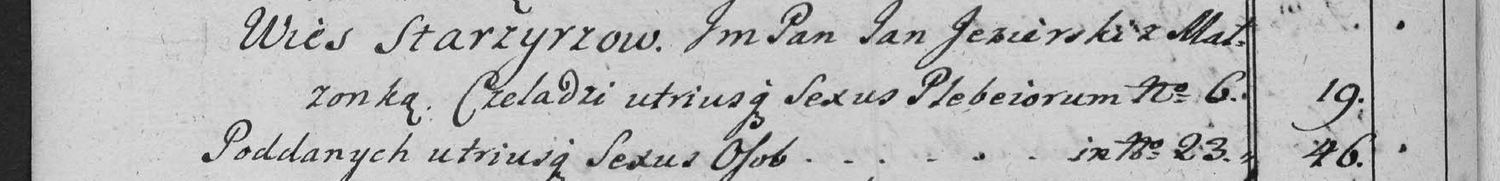 Wieś Starzyrzow. Im Pan Jan Jezierski z Mał-
zonką. Czeladzi utriusq̃ Sexus Plebeiorum No 6. 19.
Poddanych utriusq̃ Sexus Osob . . . . . . in No 23. 46.